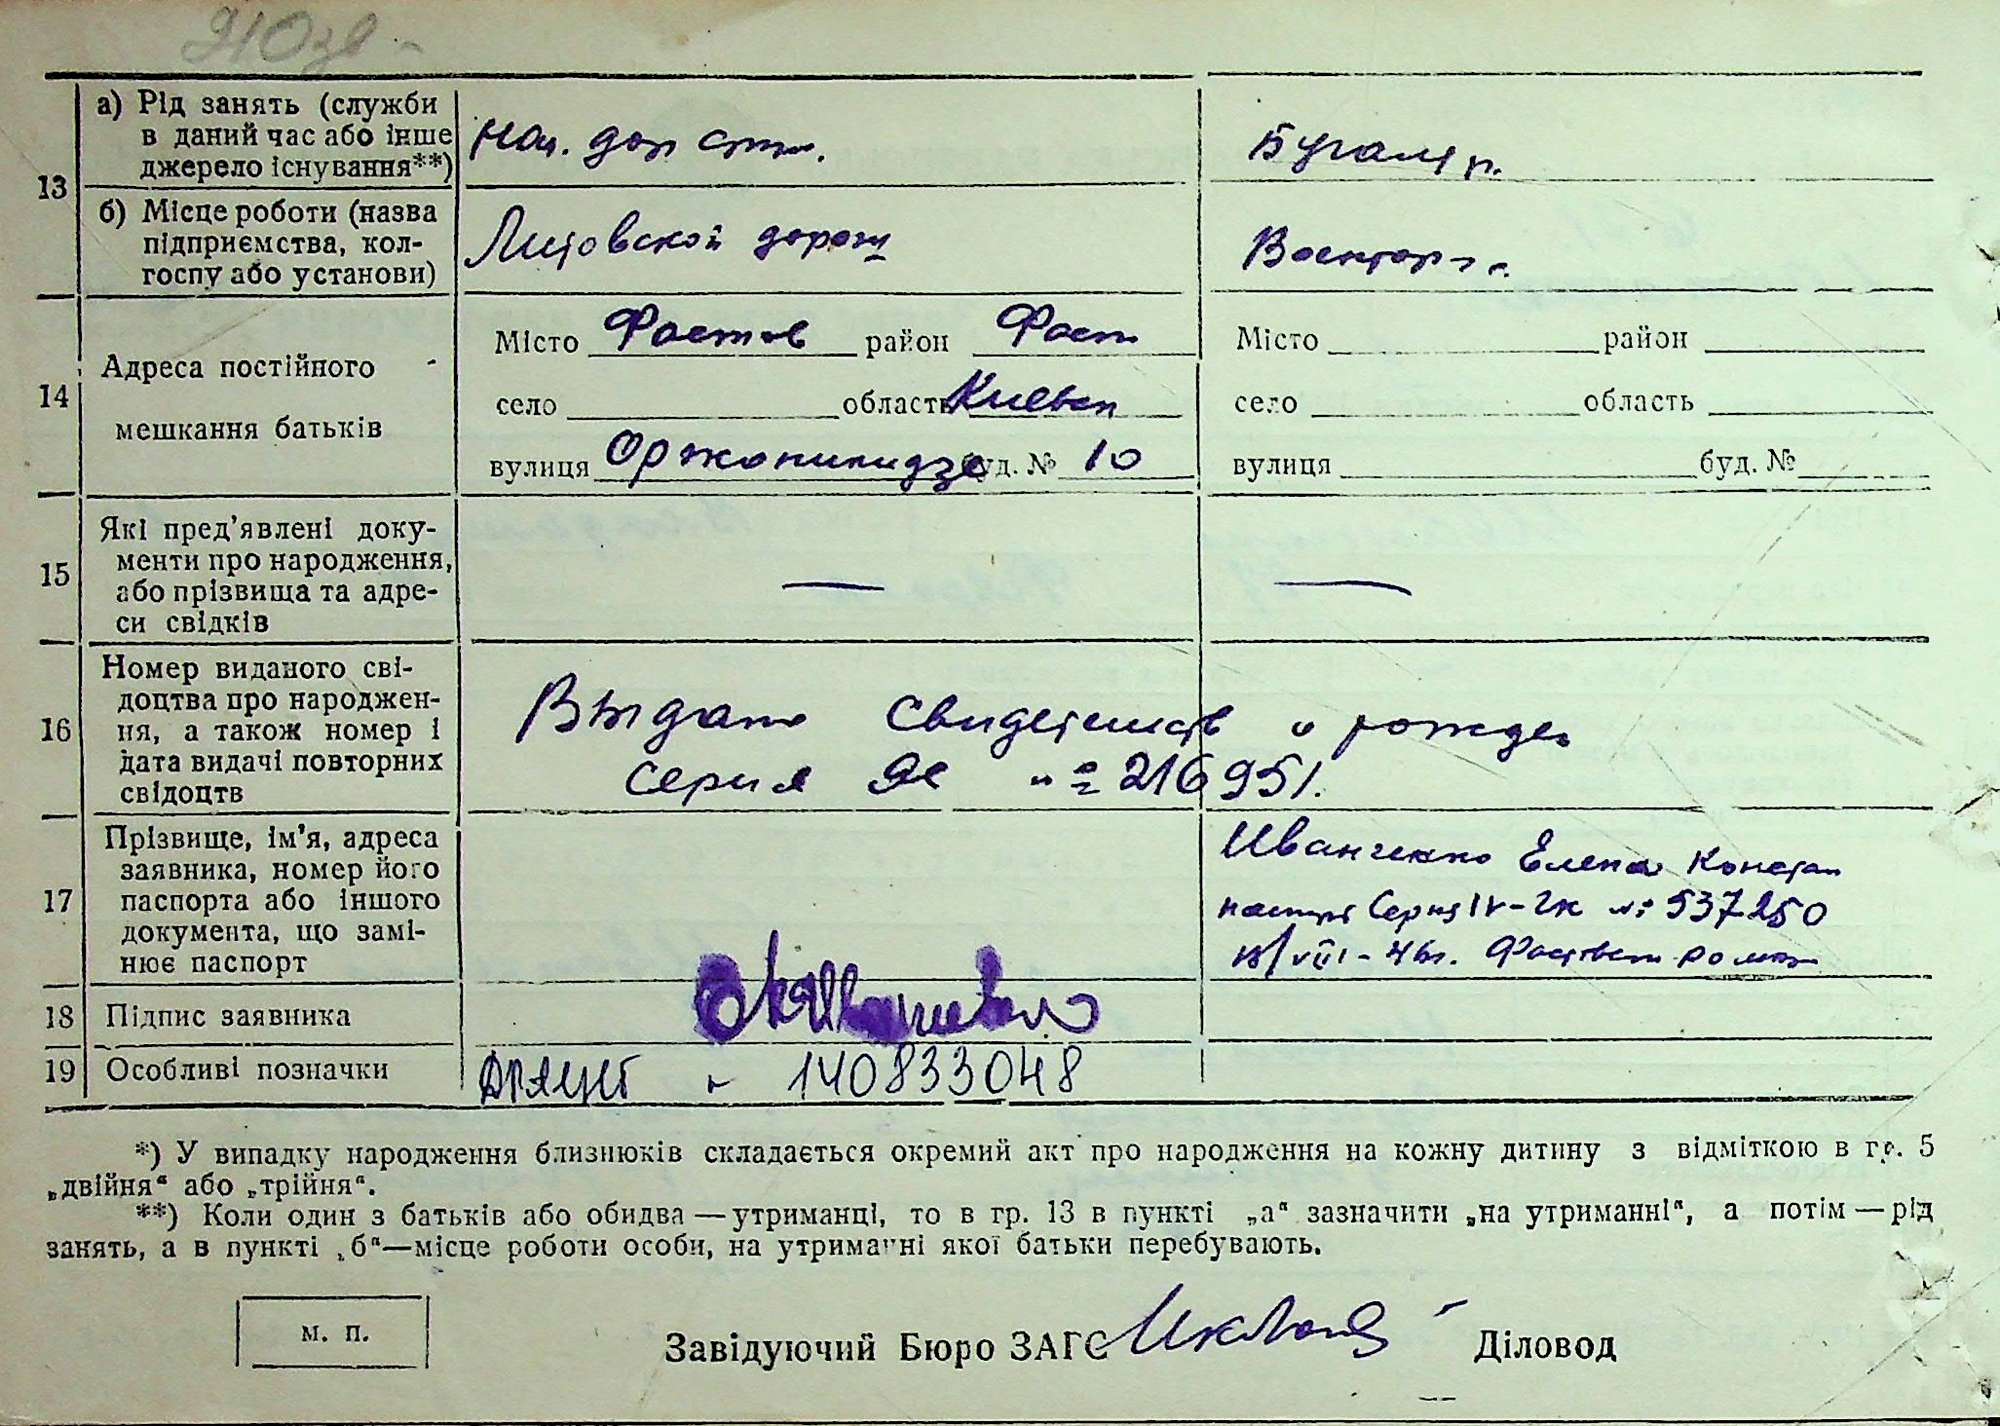 13
а) Рід занять (служби
в даний час або інше
джерело існування**)
нач. дор
Бугалт р.
б) Місце роботи (назва
підприємства, кол-
госпу або установи)
Литовской дороги
Военторг
14
Адреса постійного
мешкання батьків
Місто Фастов район Фаст
село область Киевск
вулиця Оржоникидзе буд. № 10
Місто район
село область
вулиця буд. №
15
Які пред’явлені доку-
менти про народження,
або прізвища та адре-
си свідків
—
—
16
Номер виданого сві-
доцтва про народжен-
ня, а також номер і
дата видачі повторних
свідоцтв
Выдано свидетельств о рожден
серия № 216951.
17
Прізвище, ім’я, адреса
заявника, номер його
паспорта або іншого
документа, що замі-
нює паспорт
Иванченко Елена Констан
паспорт Серия IV-ЧК № 537250
/VIII-46г. Фастовск
18
Підпис заявника
19
Особливі позначки
ДРАЦСГ - 140833048
*) У випадку народження близнюків складається окремий акт про народження на кожну дитину з відміткою в гр. 5
„двійня“ або „трійня“.
**) Коли один з батьків або обидва — утриманці, то в гр. 13 в пункті „а“ зазначити „на утриманні“, а потім — рід
занять, а в пункті „б“—місце роботи особи, на утриманні якої батьки перебувають.
м. п.
Завідуючий Бюро ЗАГС
Діловод